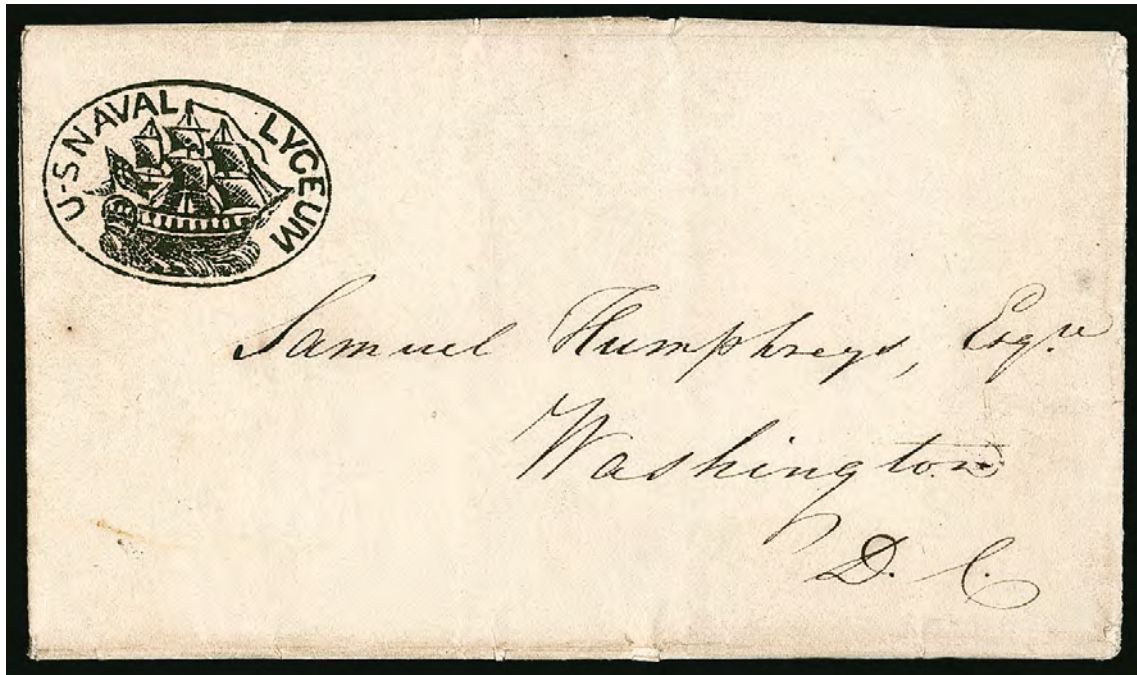 U-S NAVAL LYCEUM
Samuel Humphreys, Esqre
Washington
D. C.